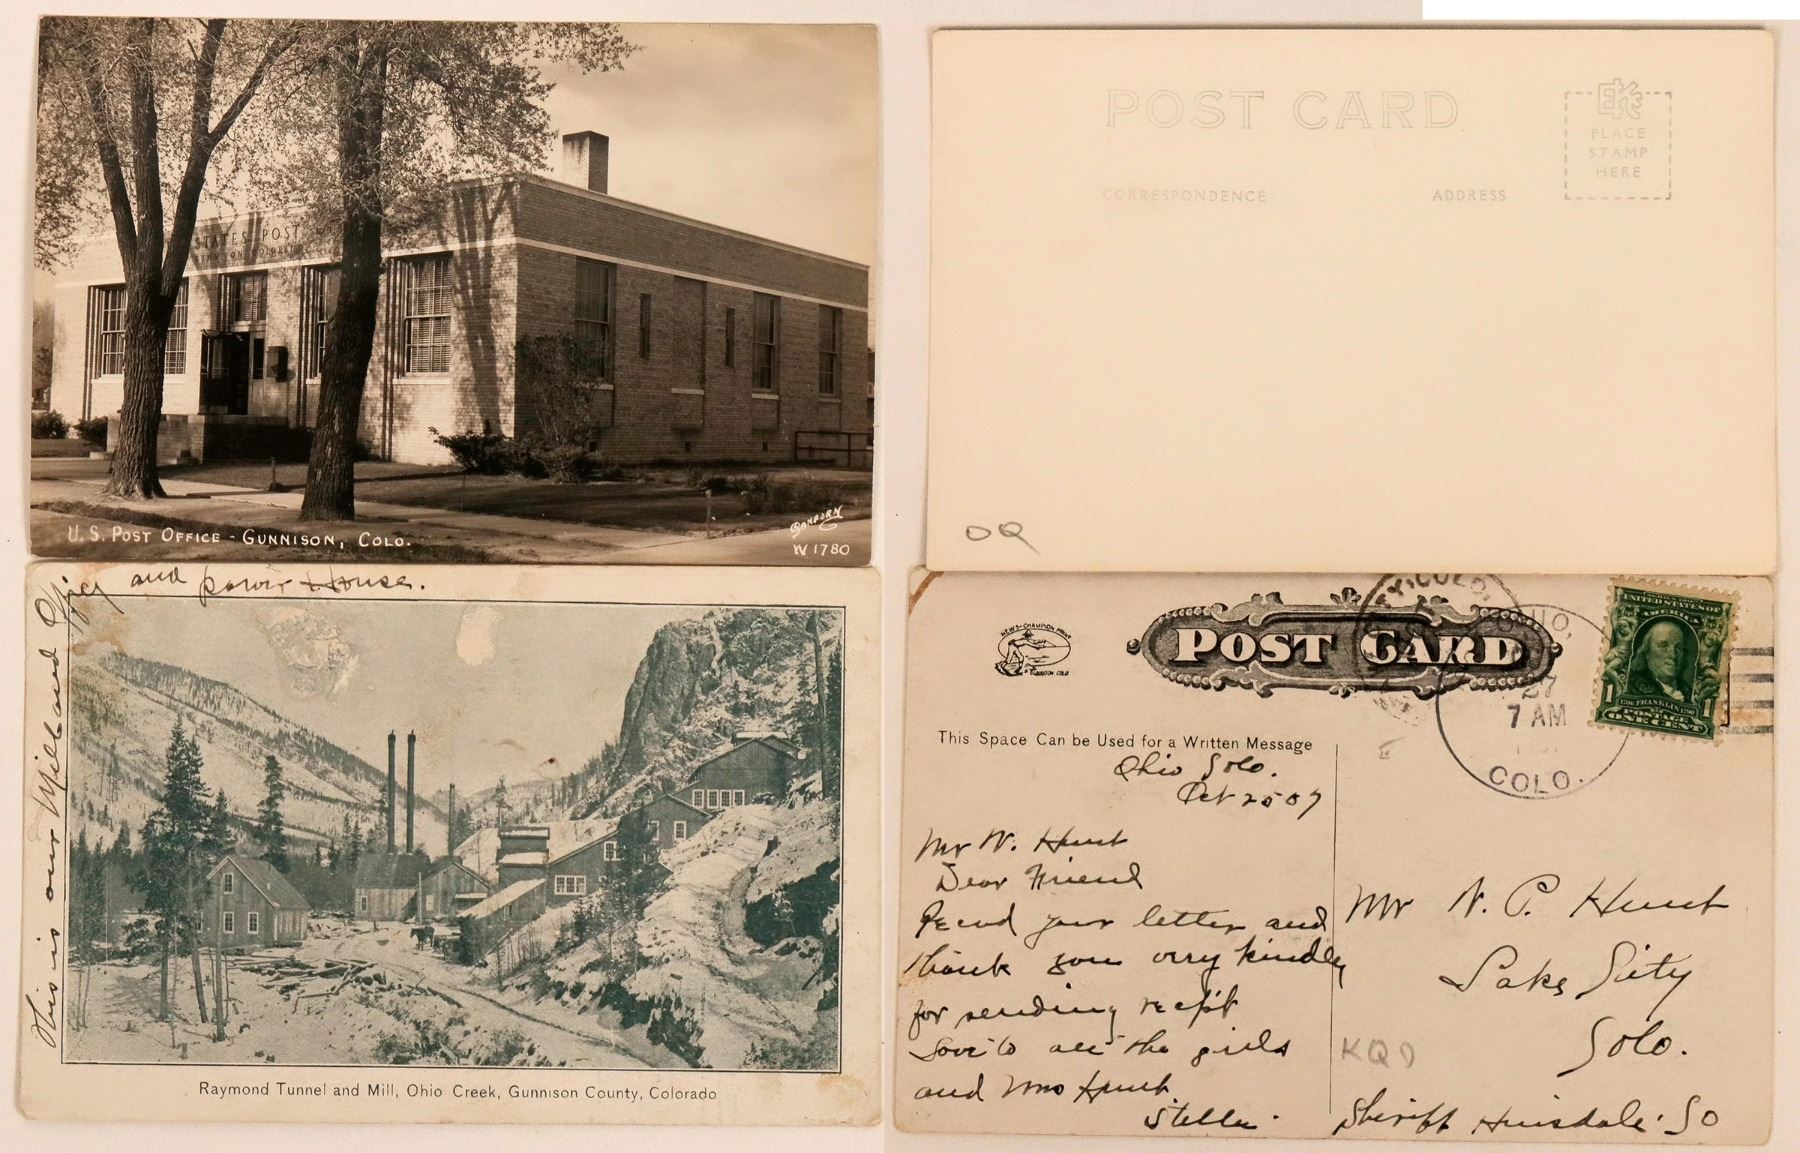 STATES POST
GUNNISON COLORADO
U. S. POST OFFICE - GUNNISON, COLO.
SANBORN
W. 1780
POST CARD
EKC
PLACE
STAMP
HERE
CORRESPONDENCE
ADDRESS
OQ
This is our Mill and Office and power House.
Raymond Tunnel and Mill, Ohio Creek, Gunnison County, Colorado
NEWS-CHAMPION PRINT
GUNNISON, COLO
POST CARD
COLO.
27
7 AM
COLO.
UNITED STATES OF
AMERICA
1 1
1706 FRANKLIN 1790
POSTAGE
ONE CENT
This Space Can be Used for a Written Message
Ohio Colo.
Oct 25 07
Mr N. Hunt
Dear Friend
Recud your letter and
thank you very kindley
for sending recpt
Love to all the girls
and Mrs Hunt.
Stella.
Mr N. P. Hunt
Lake City
Colo.
Sheriff Hinsdale. Co
KQ